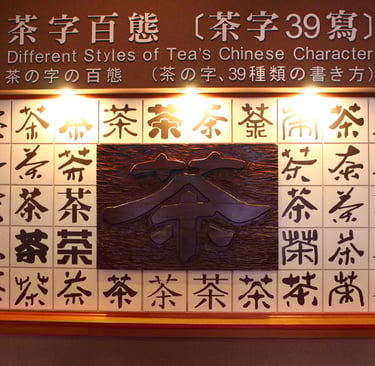 茶字百態 〔茶字39寫〕
Different Styles of Tea's Chinese Character
茶の字の百態 （茶の字、39種類の書き方）
茶 茶 茶 茶 茶 茶 茶 茶
茶 茶 茶 茶
茶 茶 茶 茶 茶
茶 茶 茶 茶
茶 茶 茶 茶 茶 茶 茶 茶